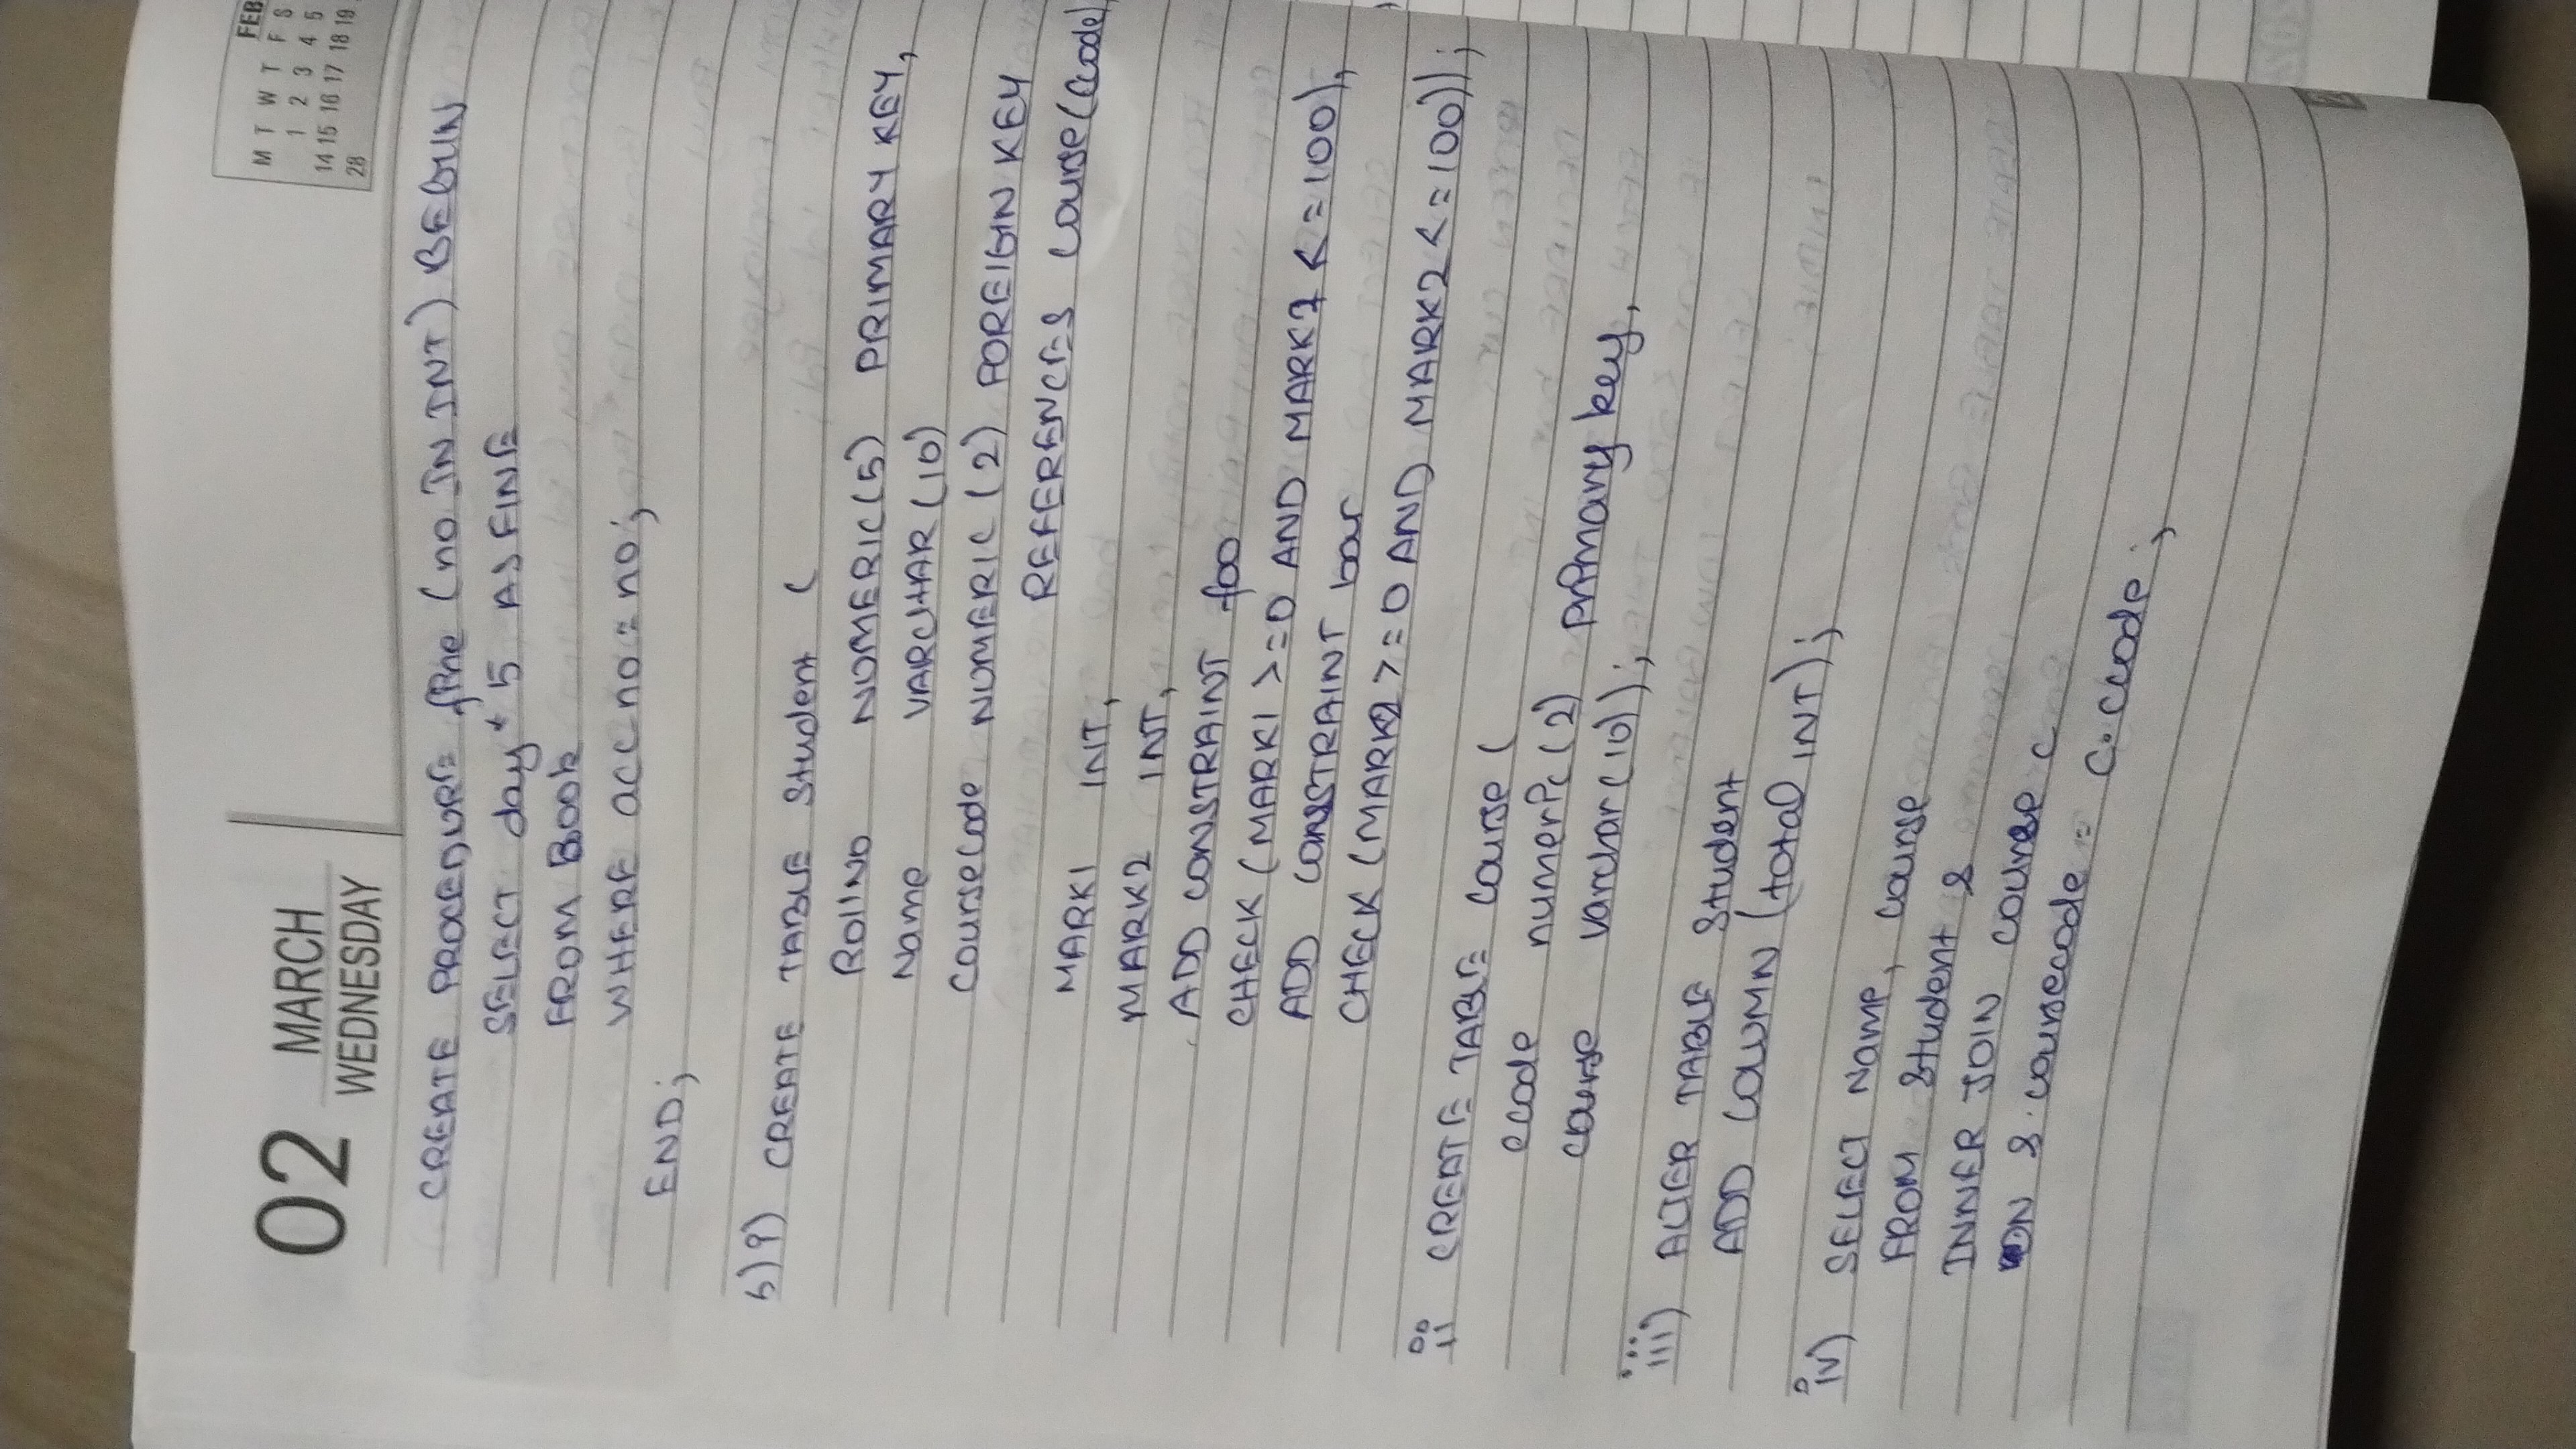 02 MARCH
WEDNESDAY
FEB
M T W T F S
1 2 3 4 5
14 15 16 17 18 19
28
CREATE PROCEDURE fine (no IN INT) BEGIN
SELECT day * 5 AS FINE
FROM Book
WHERE accno = no;
END;
5) i) CREATE TABLE Student (
RollNo NUMERIC(5) PRIMARY KEY,
Name VARCHAR (10)
CourseCode NUMERIC (2) FOREIGN KEY
REFERENCES Course(Ccode),
MARK1 INT,
MARK2 INT,
ADD CONSTRAINT foo
CHECK (MARK1 >=0 AND MARK1 <=100),
ADD CONSTRAINT bar
CHECK (MARK2 >=0 AND MARK2 <=100));
ii CREATE TABLE Course (
ccode numeric(2) primary key,
course varchar(10));
iii) ALTER TABLE Student
ADD COLUMN (total INT);
iv) SELECT Name, Course
FROM Student S
INNER JOIN course c
ON S.coursecode = C.ccode;